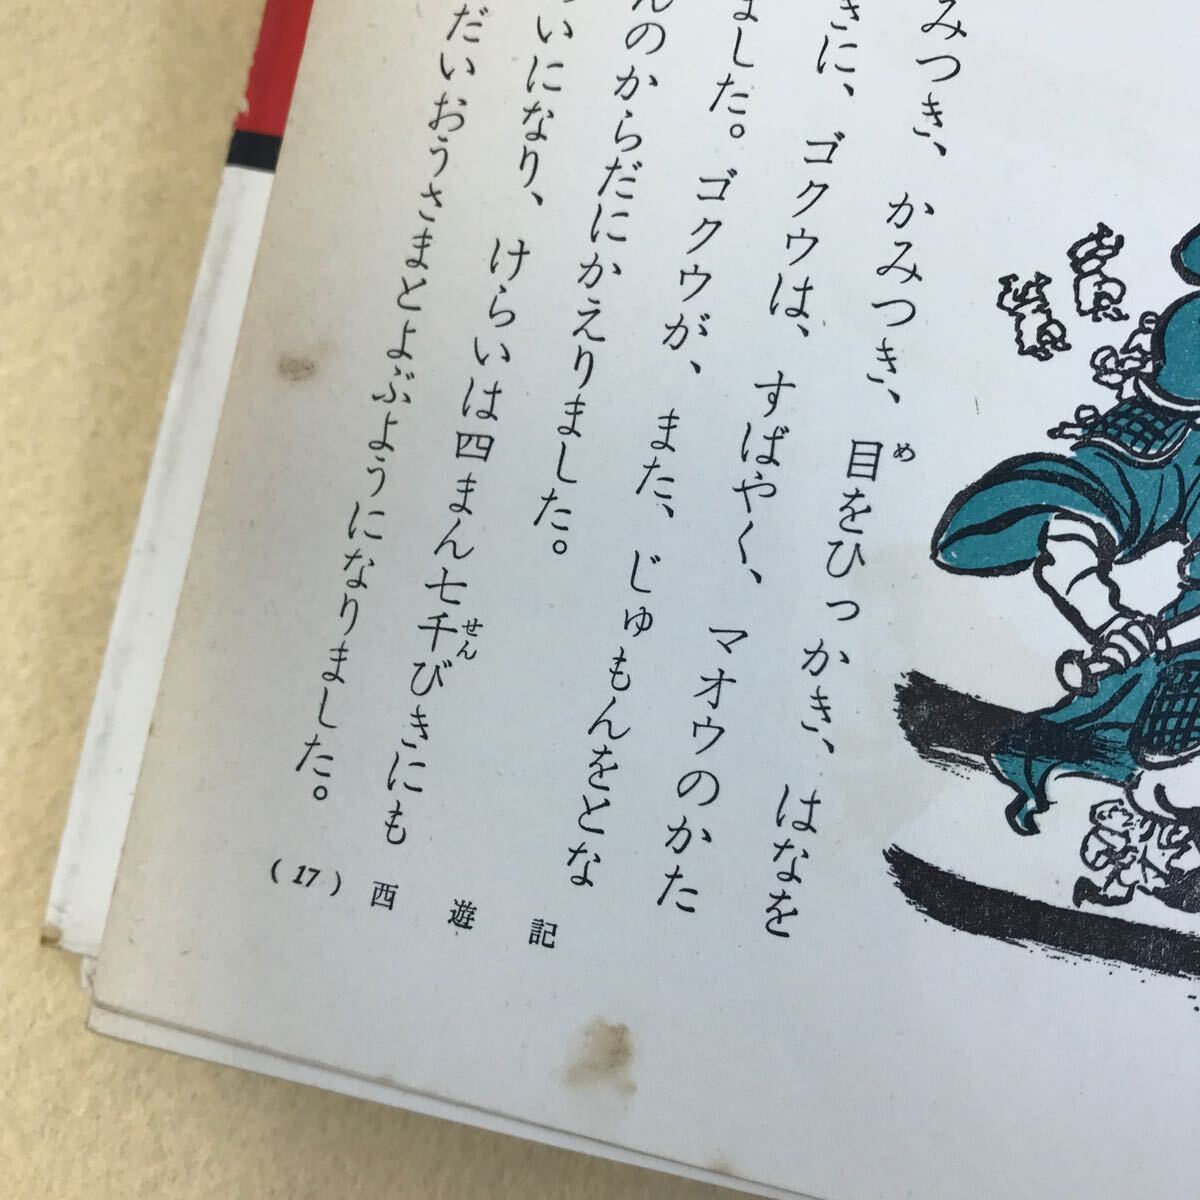 みつき、かみつき、目をひっかき、はなを
きに、ゴクウは、すばやく、マオウのかた
ました。ゴクウが、また、じゅもんをとな
んのからだにかえりました。
いになり、けらいは四まん七千びきにも
だいおうさまとよぶようになりました。
め
せん
(17) 西遊記